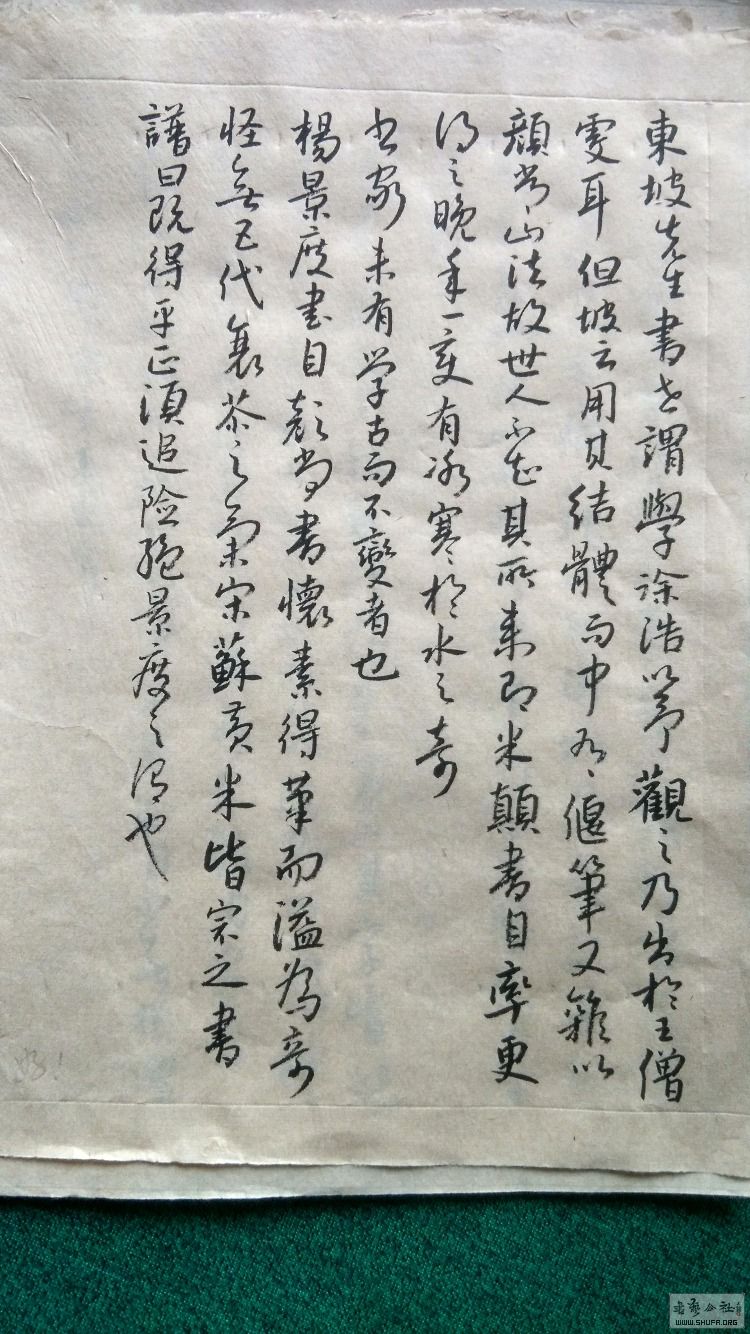 東坡先生書世謂學徐浩以予觀之乃出於王僧
虔耳但坡云用其結體而中有偃筆又雜以
顏常山法故世人不知其所來即米顛書自率更
得之晚年一變有冰寒於水之奇
書家未有学古而不變者也
楊景度書自顏尚書懷素得筆而溢為奇
怪無五代衰苶之氣宋蘇黃米皆宗之書
譜曰既得平正須追險絕景度之謂也
好！
WWW.SHUFA.ORG